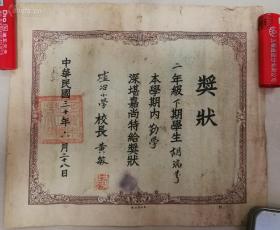 獎狀
二年級下期學生胡瑞
本學期內勤學
深堪嘉尚特給獎狀
小學校長黃敏
中華民國三十年六月二十八日